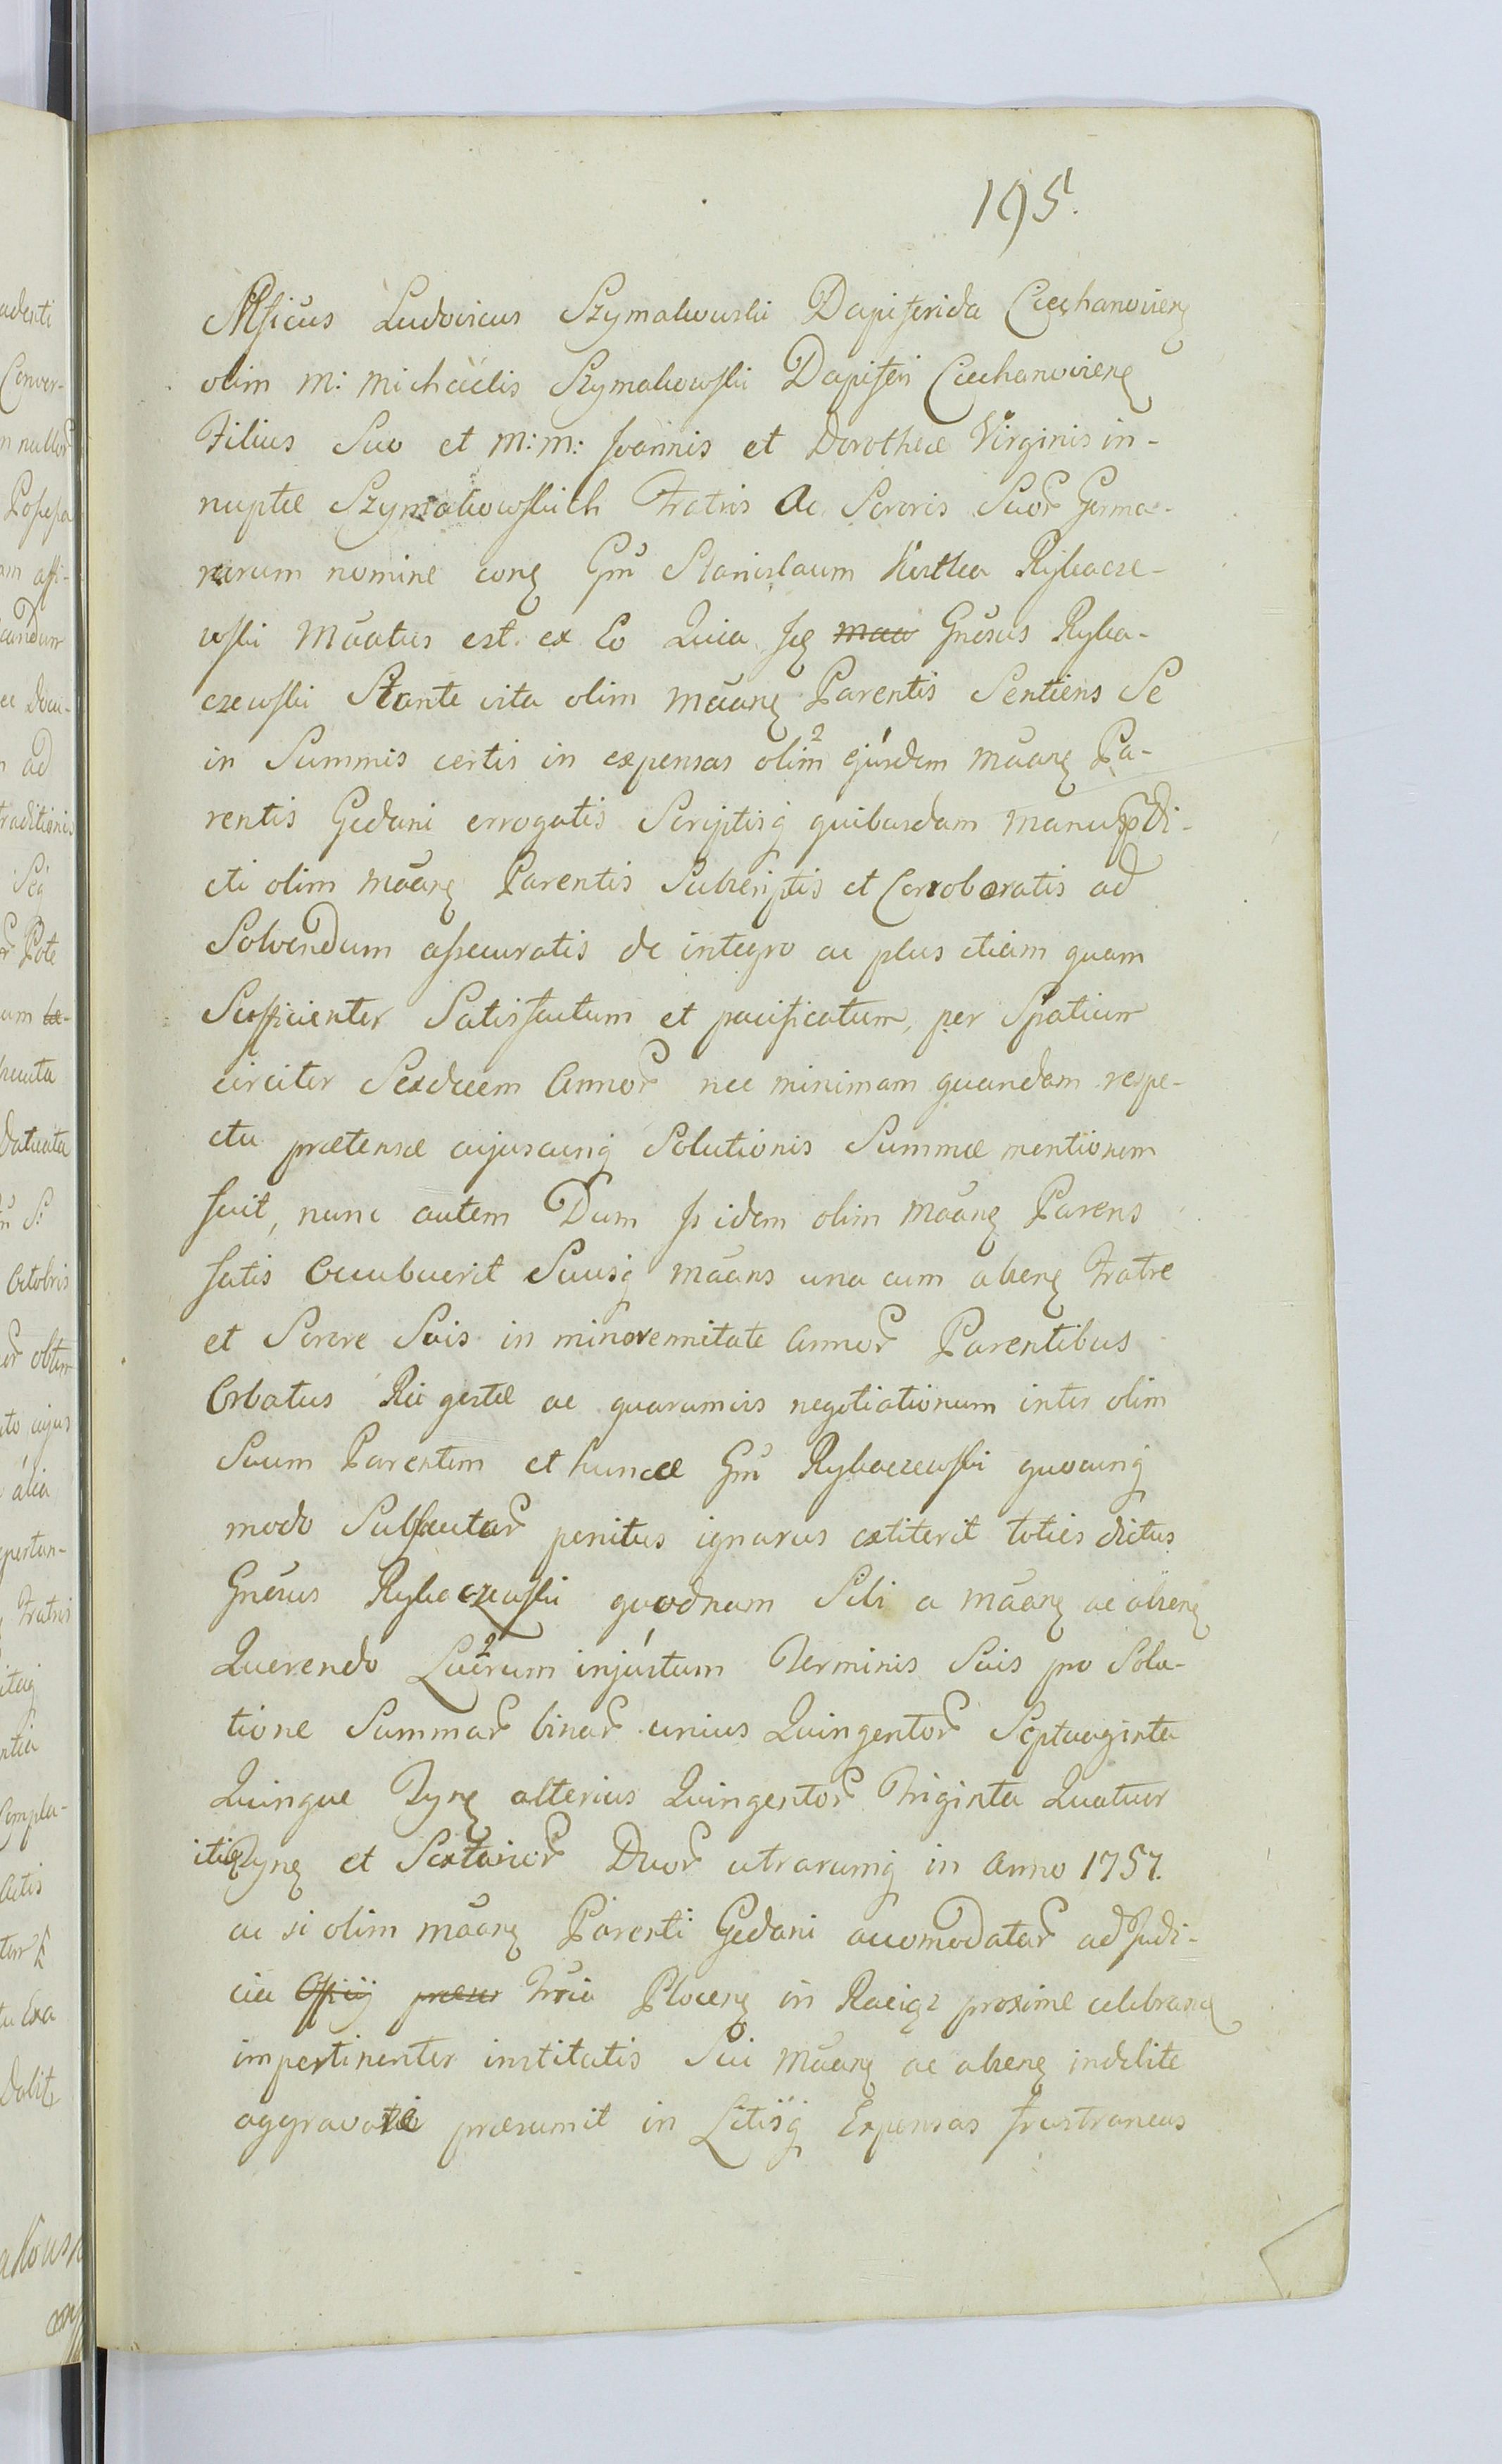 195.
Mficus Ludovicus Szymakowski Dapiferida Ciechanovien
olim M: Michaelis Szymakowski Dapiferi Ciechanovien
Filius Suo et M: M: Joannis et Dorotheæ Virginis in-
nuptæ Szymakowskich Fratris ac Sororis Suor Germa-
narum nomine con Gm Stanislaum Kostka Rybacze-
wski Maatus est. ex Eo Quia Js maa Gnosus Ryba-
czewski Stante vita olim Maan Parentis Sentiens Se
in Summis certis in expensas olim ejusdem Maan Pa-
rentis Gedani errogatis Scriptisq quibusdam manu pdi-
cti olim Maan Parentis Subscriptis et Corroboratis ad
Solvendum assecuratis de integro ac plus etiam quam
Sufficienter Satisfactum et pacificatum, per Spatium
circiter Sexdecem Annor nec minimam quandam respe-
ctu prætensæ cujuscunq Solutionis Summæ mentionem
fecit, nunc autem Dum Js idem olim Maan Parens
fatis Occubuerit Suusq Maans una cum absen Fratre
et Sorore Suis in minorennitate Annor Parentibus
Orbatus Rei gestæ ac quarumvis negotiationum inter olim
Suum Parentem et hunce Gm Rybaczewski quocunq
modo Subsecutar penitus ignarus extiterit toties dictus
Gnosus Rybaczewski quodnam Sibi a Maan ac absen
Querendo Lucrum injustum Terminis Suis pro Solu-
tione Summar binar unius Quingentor Septuaginta
Quinque Tyn alterius Quingentor Triginta Quatuor
itid Tyn et Sextarior Duor utrarumq in Anno 1757.
ac si olim Maan Parenti Gedani accomodatar ad Judi-
cia Officij præsen Trria Plocen in Raciąż proxime celebran
impertinenter institutis Sui Maan ac absen indebite
aggravare præsumit in Litisq Expensas frustraneas